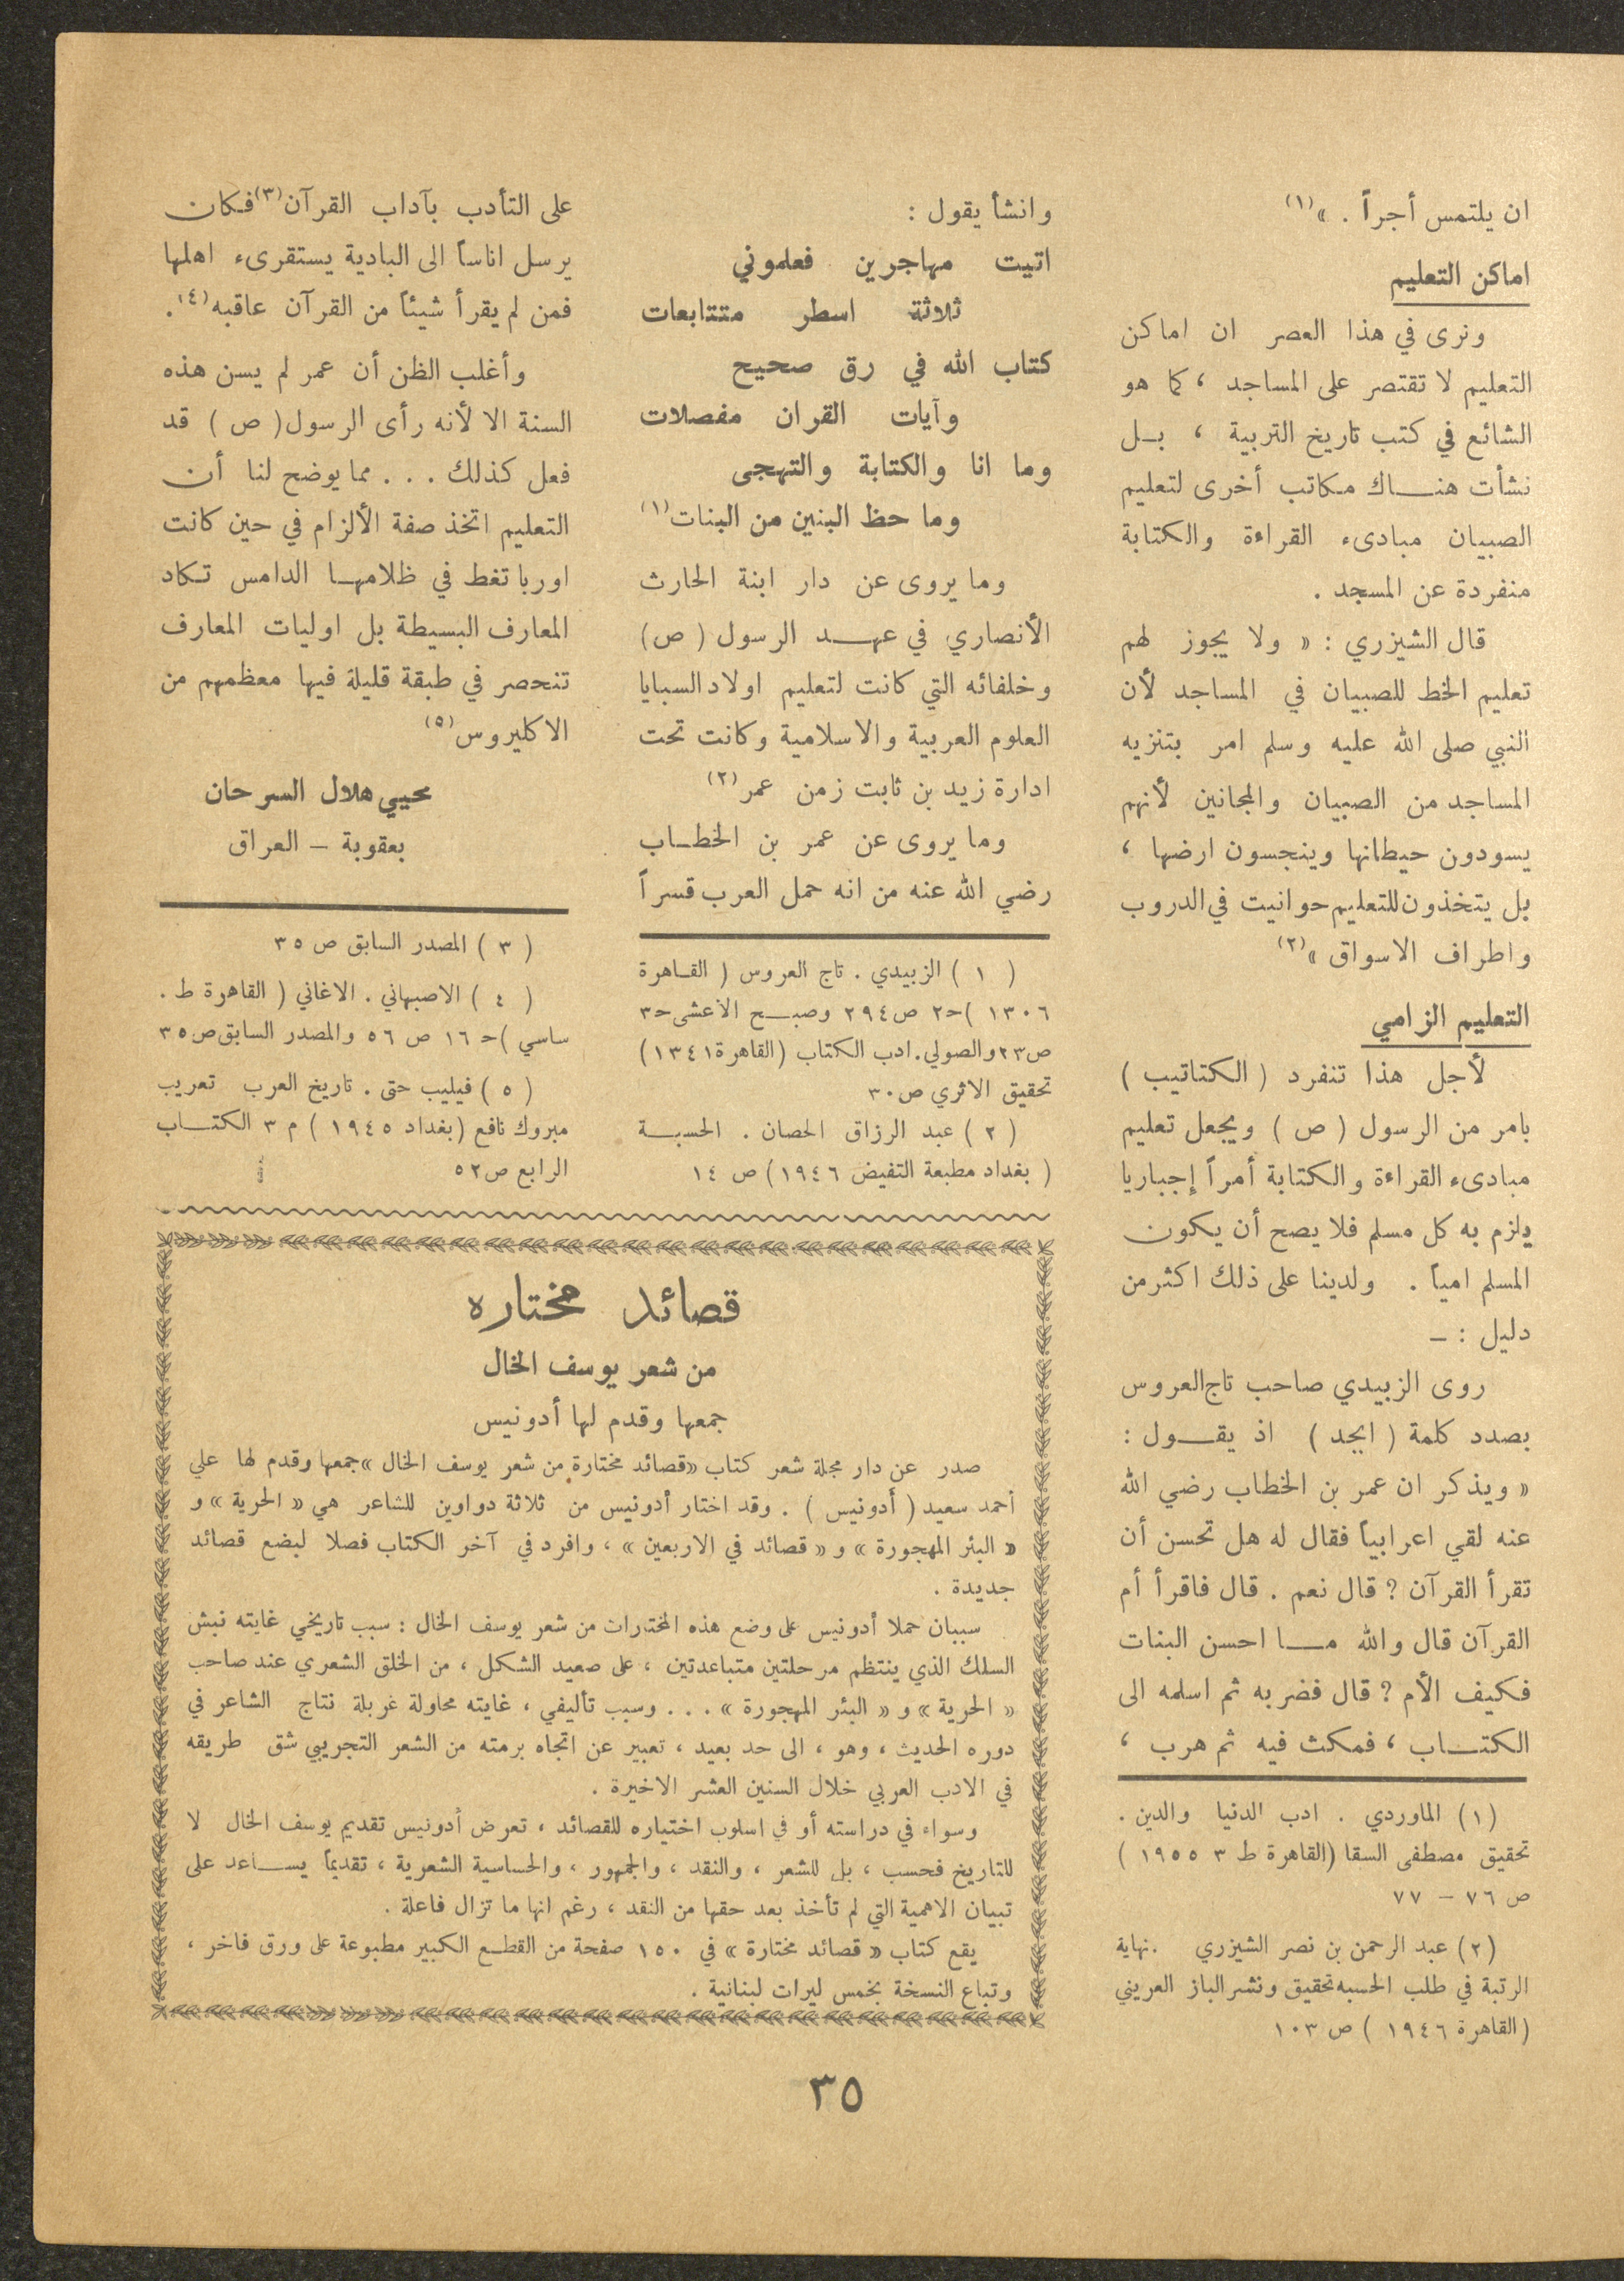 ان يلتمس أجراً . »(١)
اماكن التعليم
ونرى في هذا العصر ان اماكن
التعليم لا تقتصر على المساجد ، كما هو
الشائع في كتب تاريخ التربية ، بـل
نشأت هنـاك مكاتب أخرى لتعليم
الصبيان مبادىء القراءة والكتابة
منفردة عن المسجد .
قال الشيزري : « ولا يجوز لهم
تعليم الخط للصبيان في المساجد لأن
النبي صلى الله عليه وسلم امر بتنزيه
المساجد من الصبيان والمجانين لأنهم
يسودون حيطانها وينجسون ارضها ،
بل يتخذون للتعليم حوانيت في الدروب
واطراف الاسواق »(٢)
التعليم الزامي
لأجل هذا تنفرد ( الكتاتيب )
بامر من الرسول ( ص ) ويجعل تعليم
مبادىء القراءة والكتابة أمراً إجباريا
يلزم به كل مسلم فلا يصح أن يكون
المسلم امياً . ولدينا على ذلك اكثر من
دليل : –
روى الزبيدي صاحب تاج العروس
بصدد كلمة ( ابجد ) اذ يقـول :
« ويذكر ان عمر بن الخطاب رضي الله
عنه لقي اعرابياً فقال له هل تحسن أن
تقرأ القرآن ? قال نعم . قال فاقرأ أم
القرآن قال والله مـا احسن البنات
فكيف الأم ? قال فضربه ثم اسلمه الى
الكتـاب ، فمكث فيه ثم هرب ،
(١) الماوردي . ادب الدنيا والدين .
تحقيق مصطفى السقا (القاهرة ط ٣ ١٩٥٥ )
ص ٧٦ – ٧٧
(٢) عبد الرحمن بن نصر الشيزري . نهاية
الرتبة في طلب الحسبه تحقيق ونشر الباز العريني
(القاهرة ١٩٤٦ ) ص ١٠٣
وانشأ يقول :
اتيت مهاجرين فعلموني
ثلاثة اسطر متتابعات
كتاب الله في رق صحيح
وآيات القران مفصلات
وما انا والكتابة والتهجى
وما حظ البنين من البنات(١)
وما يروى عن دار ابنة الحارث
الأنصاري في عهـد الرسول ( ص )
وخلفائه التي كانت لتعليم اولاد السبايا
العلوم العربية والاسلامية وكانت تحت
ادارة زيد بن ثابت زمن عمر(٢)
وما يروى عن عمر بن الخطـاب
رضي الله عنه من انه حمل العرب قسراً
( ١ ) الزبيدي . تاج العروس ( القـاهرة
١٣٠٦ )حـ٢ ص ٢٩٤ وصبـح الاعشى حـ٣
ص٢٣ والصولي. ادب الكتاب (القاهرة ١٣٤١)
تحقيق الاثري ص ٣٠
( ٢ ) عبد الرزاق الحصان . الحسبـة
( بغداد مطبعة التفيض ١٩٤٦) ص ١٤
على التأدب بآداب القرآن(٣) فكان
يرسل اناساً الى البادية يستقرىء اهلها
فمن لم يقرأ شيئاً من القرآن عاقبه(٤).
وأغلب الظن أن عمر لم يسن هذه
السنة الا لأنه رأى الرسول( ص ) قد
فعل كذلك . . . مما يوضح لنا أن
التعليم اتخذ صفة الألزام في حين كانت
اوربا تغط في ظلامهـا الدامس تكاد
المعارف البسيطة بل اوليات المعارف
تنحصر في طبقة قليلة فيها معظمهم من
الاكليروس(٥)
محيي هلال السرحان
بعقوبة – العراق
( ٣ ) المصدر السابق ص ٣٥
( ٤ ) الاصبهاني . الاغاني ( القاهرة ط .
ساسي )حـ ١٦ ص ٥٦ والمصدر السابق ص ٣٥
( ٥ ) فيليب حتى . تاريخ العرب تعريب
مبروك نافع (بغداد ١٩٤٥ ) م ٣ الكتـاب
الرابع ص ٥٢
قصائد مختاره
من شعر يوسف الخال
جمعها وقدم لها أدونيس
صدر عن دار مجلة شعر كتاب «قصائد مختارة من شعر يوسف الخال» جمعها وقدم لها علي
أحمد سعيد ( أدونيس ) . وقد اختار أدونيس من ثلاثة دواوين للشاعر هي « الحرية » و
« البئر المهجورة » و « قصائد في الاربعين » ، وافرد في آخر الكتاب فصلا لبضع قصائد
جديدة .
سببان حملا أدونيس على وضع هذه المختارات من شعر يوسف الخال : سبب تاريخي غايته نبش
السلك الذي ينتظم مرحلتين متباعدتين ، على صعيد الشكل ، من الخلق الشعري عند صاحب
« الحرية » و « البئر المهجورة » . . . وسبب تأليفي ، غايته محاولة غربلة نتاج الشاعر في
دوره الحديث ، وهو ، الى حد بعيد ، تعبير عن اتجاه برمته من الشعر التجريبي شق طريقه
في الادب العربي خلال السنين العشر الاخيرة .
وسواء في دراسته أو في اسلوب اختياره للقصائد ، تعرض أدونيس تقديم يوسف الخال لا
للتاريخ فحسب ، بل للشعر ، والنقد ، والجمهور ، والحساسية الشعرية ، تقديماً يسـاعد على
تبيان الاهمية التي لم تأخذ بعد حقها من النقد ، رغم انها ما تزال فاعلة .
يقع كتاب « قصائد مختارة » في ١٥٠ صفحة من القطـع الكبير مطبوعة على ورق فاخر ،
وتباع النسخة بخمس ليرات لبنانية .
٣٥